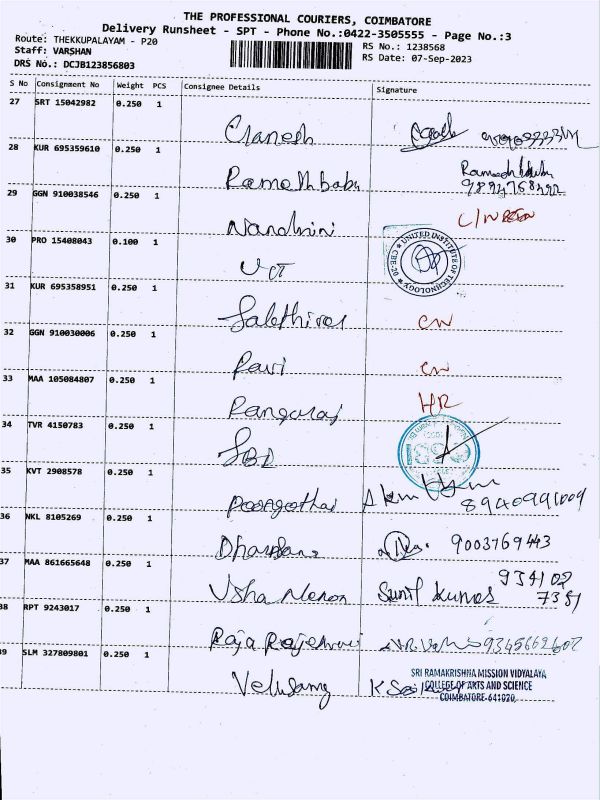 THE PROFESSIONAL COURIERS, COIMBATORE
Delivery Runsheet - SPT - Phone No.:0422-3505555 - Page No.:3
Route: THEKKUPALAYAM - P20
RS No.: 1238568
Staff: VARSHAN
RS Date: 07-Sep-2023
DRS No.: DCJB123856803
S No Consignment No Weight PCS Consignee Details Signature
27 SRT 15042982 0.250 1
Ganesh
28 KUR 695359610 0.250 1
Ramesh babu
9894768492
29 GGN 910038546 0.250 1
Nandhini
30 PRO 15408043 0.100 1
UNITED INSTITUTE OF TECHNOLOGY
CBE-20
UIT
31 KUR 695358951 0.250 1
CN
32 GGN 910030006 0.250 1
Ravi CN
33 MAA 105084807 0.250 1
Rangaraj HR
34 TVR 4150783 0.250 1
SBI
35 KVT 2908578 0.250 1
Poongothai
8940991009
36 NKL 8105269 0.250 1
9003769443
37 MAA 861665648 0.250 1
934102
7351
Usha Menon Sunil Kumar
38 RPT 9243017 0.250 1
Raja Rajeshwari 9345662602
39 SLM 327809801 0.250 1
SRI RAMAKRISHNA MISSION VIDYALAYA
COLLEGE OF ARTS AND SCIENCE
COIMBATORE-641020
Velusamy